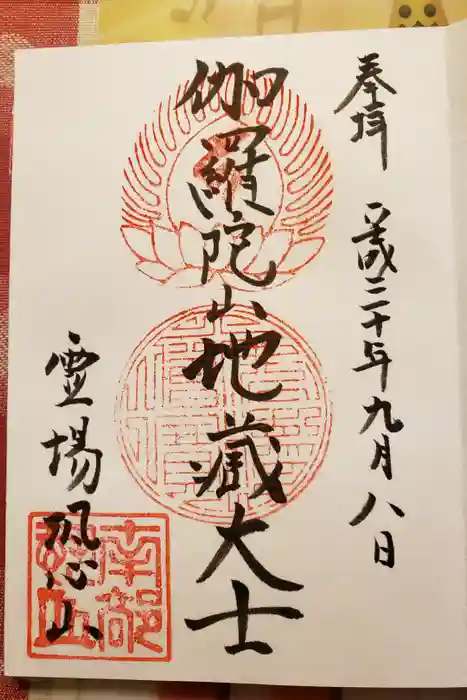 奉拝
平成三十年九月八日
伽羅陀山地蔵大士
霊場恐山
南部
恐山